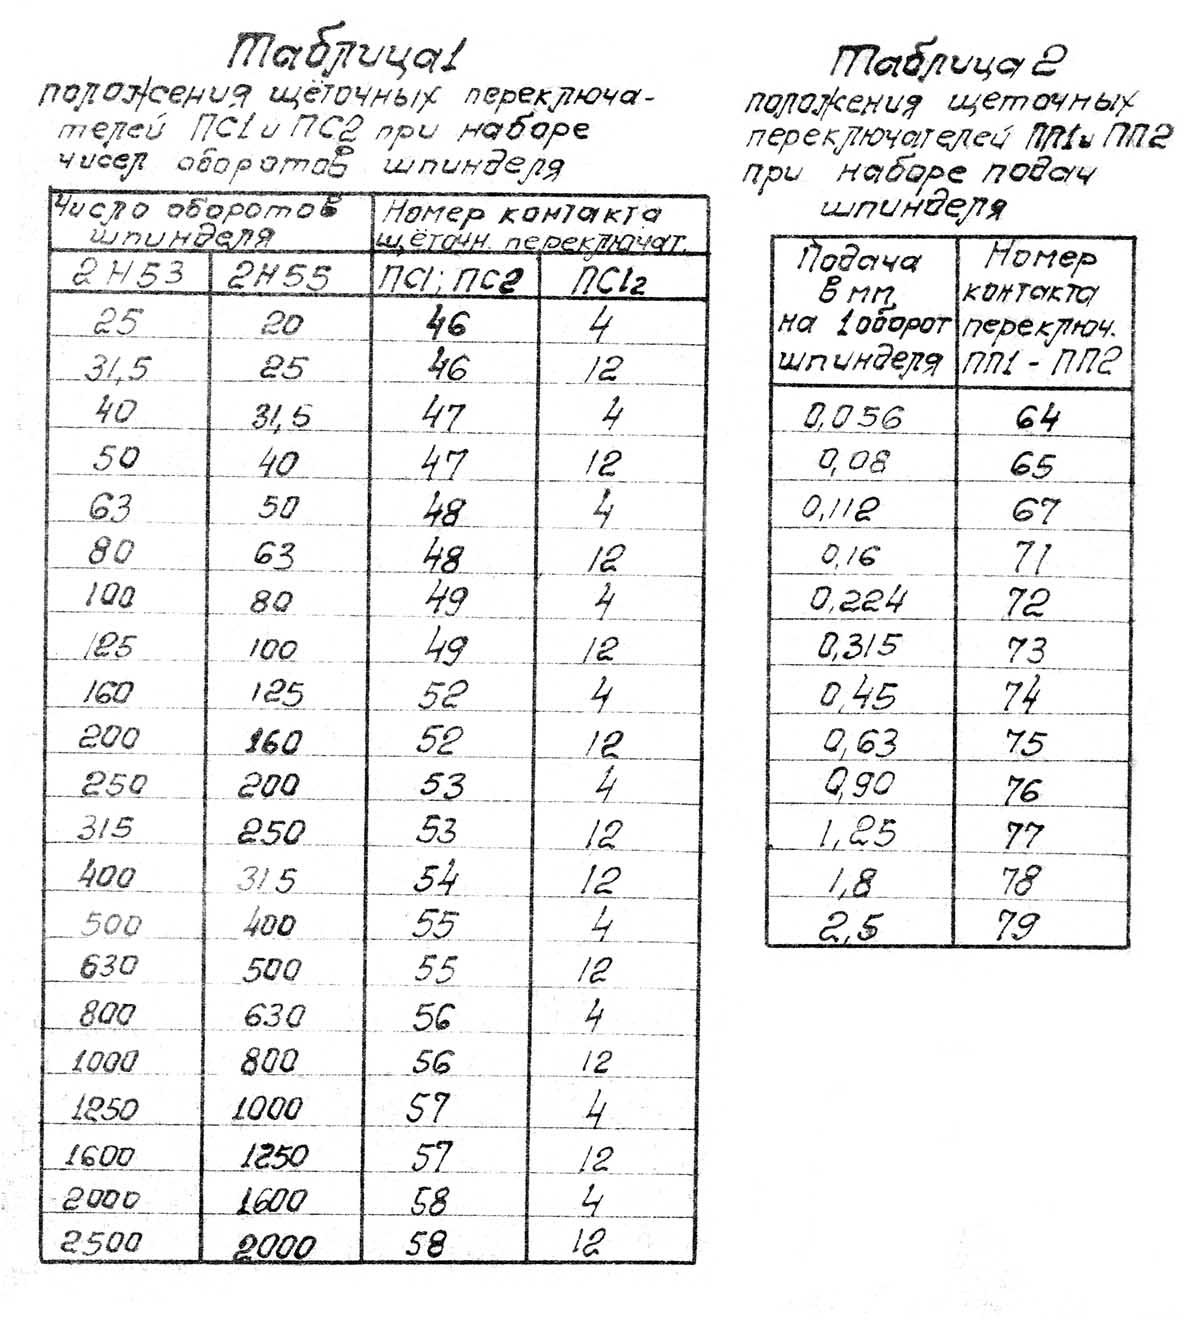 Таблица 1
положения щёточных переключа-
телей ПС1 и ПС2 при наборе
чисел оборотов шпинделя
Число оборотов шпинделя | Номер контакта щёточн. переключат.
2Н53 | 2Н55 | ПС1; ПС2 | ПС12
25 | 20 | 46 | 4
31,5 | 25 | 46 | 12
40 | 31,5 | 47 | 4
50 | 40 | 47 | 12
63 | 50 | 48 | 4
80 | 63 | 48 | 12
100 | 80 | 49 | 4
125 | 100 | 49 | 12
160 | 125 | 52 | 4
200 | 160 | 52 | 12
250 | 200 | 53 | 4
315 | 250 | 53 | 12
400 | 315 | 54 | 12
500 | 400 | 55 | 4
630 | 500 | 55 | 12
800 | 630 | 56 | 4
1000 | 800 | 56 | 12
1250 | 1000 | 57 | 4
1600 | 1250 | 57 | 12
2000 | 1600 | 58 | 4
2500 | 2000 | 58 | 12
Таблица 2
положения щеточных
переключателей ПП1 и ПП2
при наборе подач
шпинделя
Подача | Номер
в мм | контакта
на 1 оборот | переключ.
шпинделя | ПП1 - ПП2
0,056 | 64
0,08 | 65
0,112 | 67
0,16 | 71
0,224 | 72
0,315 | 73
0,45 | 74
0,63 | 75
0,90 | 76
1,25 | 77
1,8 | 78
2,5 | 79